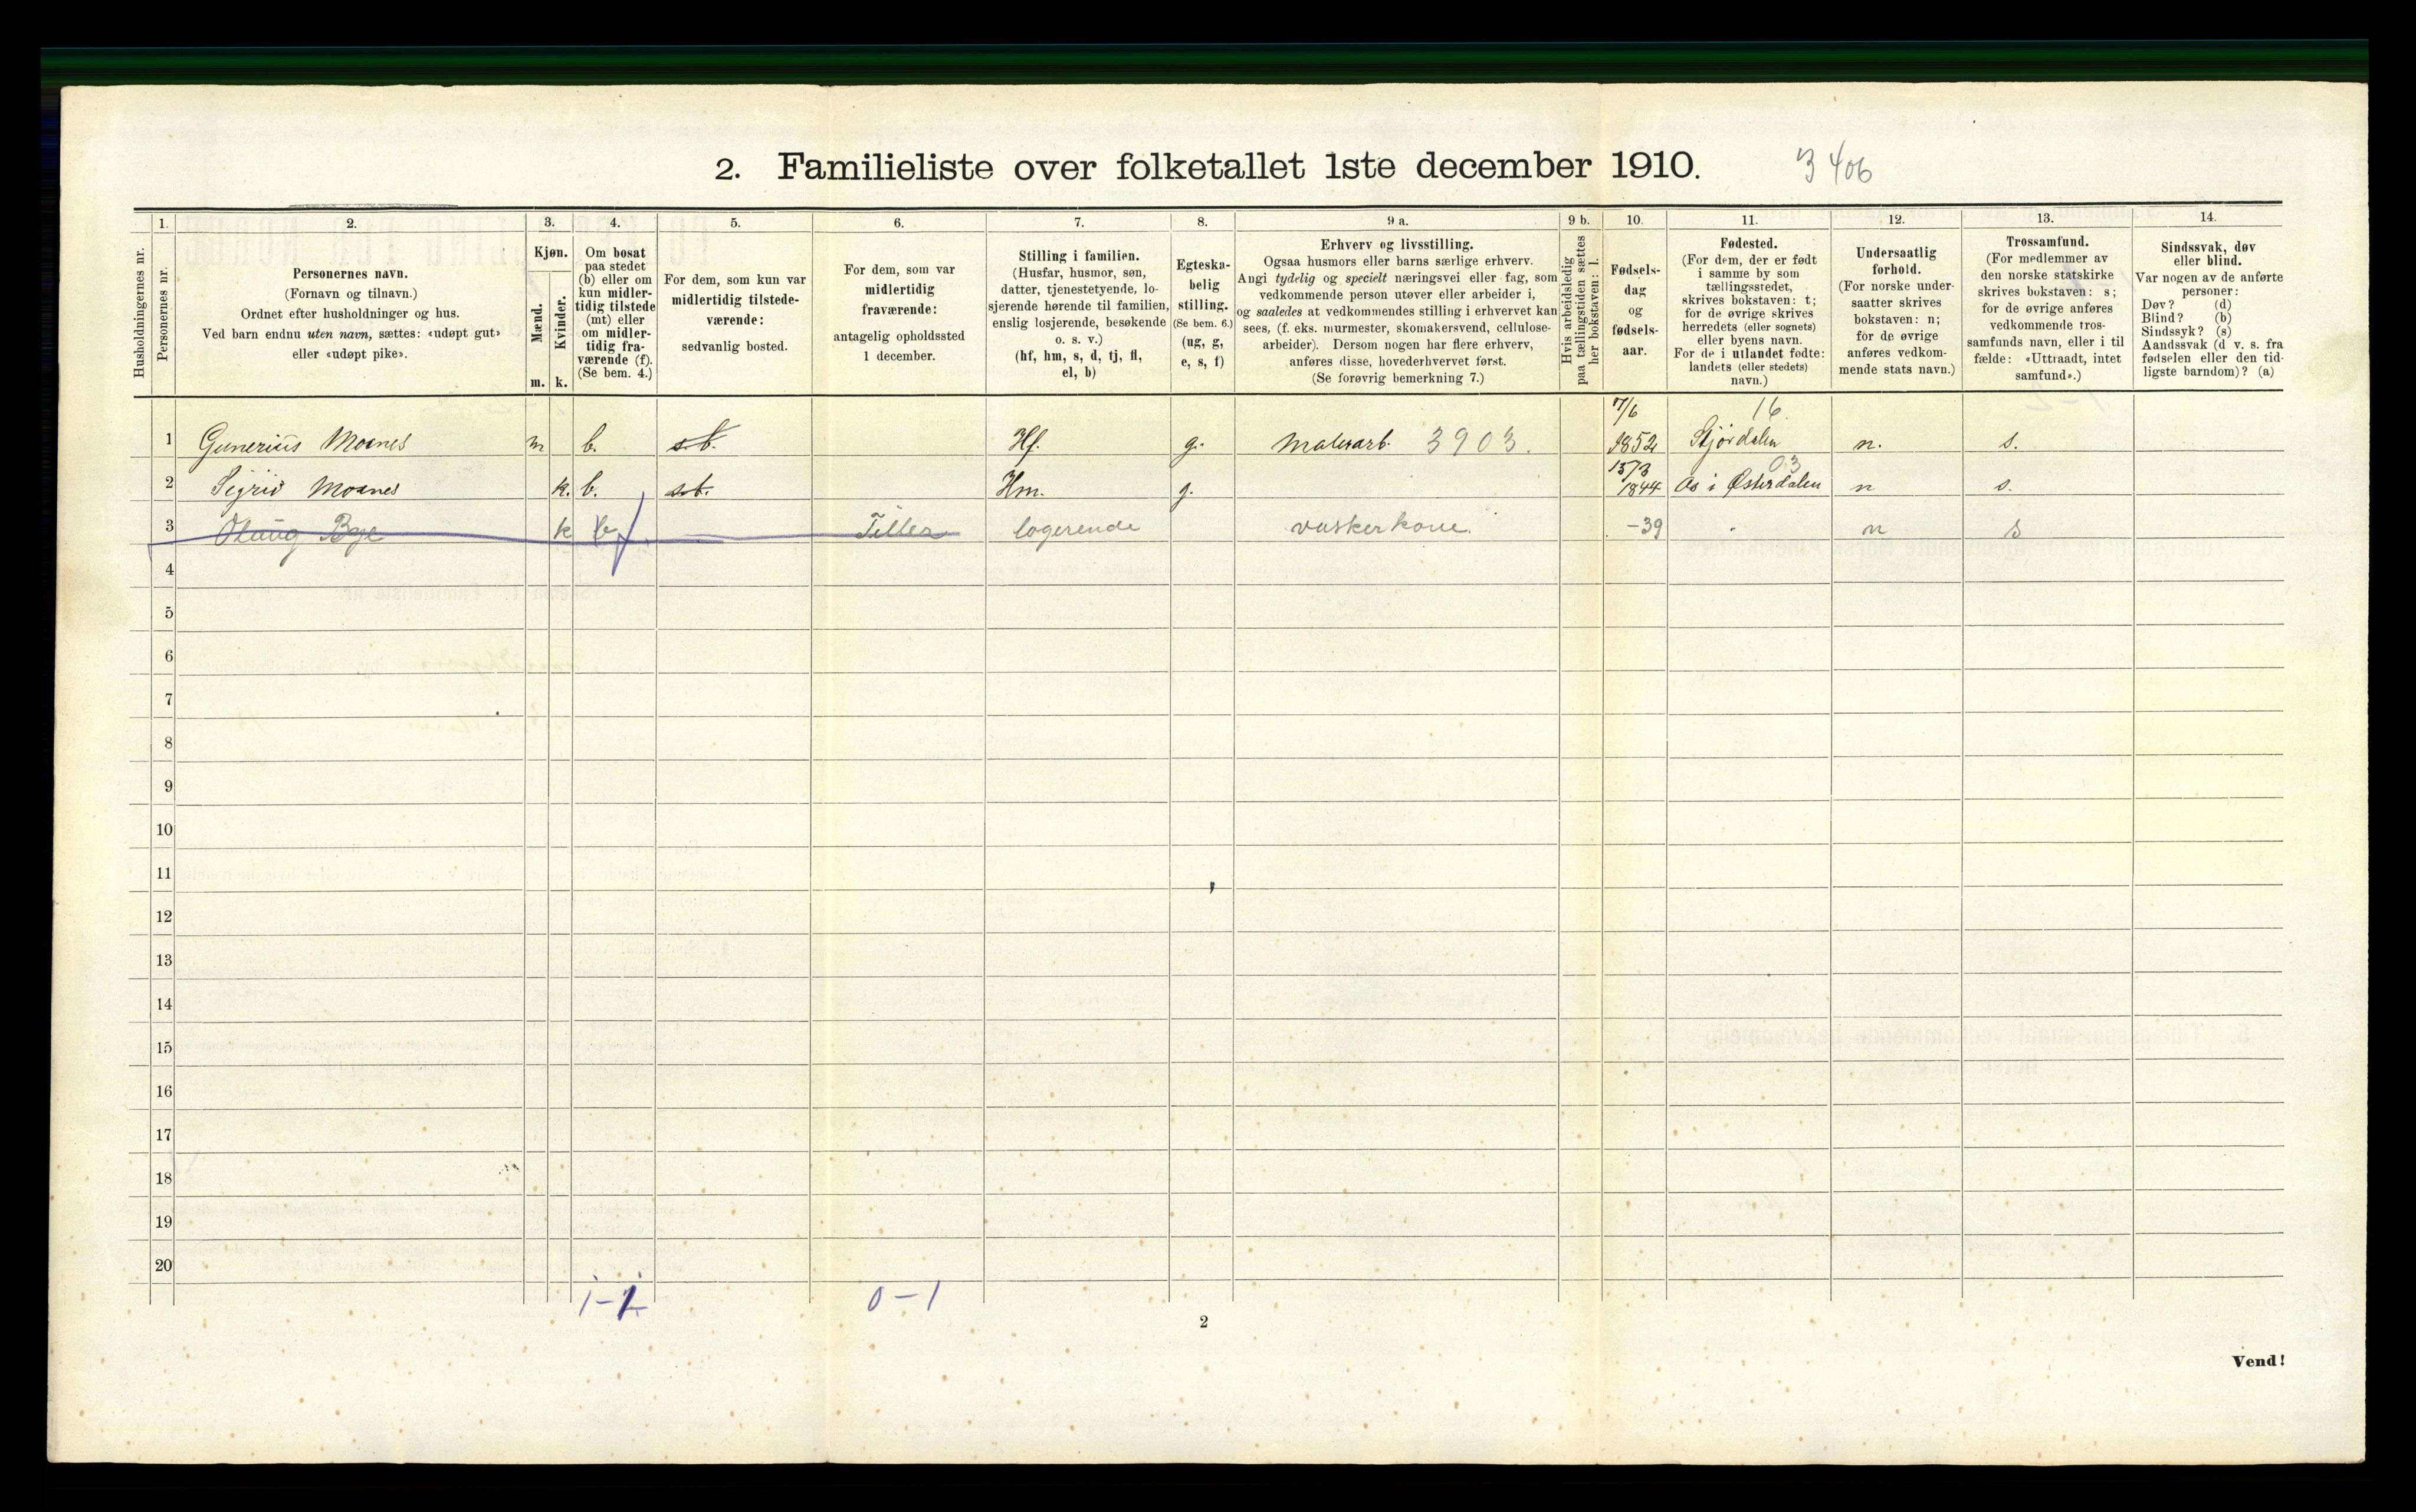 2. Familieliste over folketallet 1ste december 1910.
3406
Husholdningernes nr.
1.
Personernes nr.
2.
Personernes navn.
(Fornavn og tilnavn.)
Ordnet efter husholdninger og hus.
Ved barn endnu uten navn, sættes: «udøpt gut»
eller «udøpt pike».
3.
Kjøn.
Mænd.
m.
Kvinder.
k.
4.
Om bosat
paa stedet
(b) eller om
kun midler-
tidig tilstede
(mt) eller
om midler-
tidig fra-
værende (f).
(Se bem. 4.)
5.
For dem, som kun var
midlertidig tilstede-
værende:
sedvanlig bosted.
6.
For dem, som var
midlertidig
fraværende:
antagelig opholdssted
1 december.
7.
Stilling i familien.
(Husfar, husmor, søn,
datter, tjenestetyende, lo-
sjerende hørende til familien,
enslig losjerende, besøkende
o. s. v.)
(hf, hm, s, d, tj, fl,
el, b)
8.
Egteska-
belig
stilling.
(Se bem. 6.)
(ug, g,
e, s, f)
9 a.
Erhverv og livsstilling.
Ogsaa husmors eller barns særlige erhverv.
Angi tydelig og specielt næringsvei eller fag, som
vedkommende person utøver eller arbeider i,
og saaledes at vedkommendes stilling i erhvervet kan
sees, (f. eks. murmester, skomakersvend, cellulose-
arbeider). Dersom nogen har flere erhverv,
anføres disse, hovederhvervet først.
(Se forøvrig bemerkning 7.)
9 b.
Hvis arbeidsledig
paa tællingstiden sættes
her bokstaven: l.
10.
Fødsels-
dag
og
fødsels-
aar.
11.
Fødested.
(For dem, der er født
i samme by som
tællingsstedet,
skrives bokstaven: t;
for de øvrige skrives
herredets (eller sognets)
eller byens navn.
For de i utlandet fødte:
landets (eller stedets)
navn.)
12.
Undersaatlig
forhold.
(For norske under-
saatter skrives
bokstaven: n;
for de øvrige
anføres vedkom-
mende stats navn.)
13.
Trossamfund.
(For medlemmer av
den norske statskirke
skrives bokstaven: s;
for de øvrige anføres
vedkommende tros-
samfunds navn, eller i til
fælde: «Uttraadt, intet
samfund».)
14.
Sindssvak, døv
eller blind.
Var nogen av de anførte
personer:
Døv? (d)
Blind? (b)
Sindssyk? (s)
Aandssvak (d v. s. fra
fødselen eller den tid-
ligste barndom)? (a)
7/6 16
1 Gunerius Moanes m b. s.b. Hf. g. Malerarb. 3903. 1852 Stjørdalen n. s.
03
2 Sigrid Moanes k. b. s.t. Hm. g. 1844 Os i Østerdalen n s.
3 Olaug Bye k Tiller logerende vaskerkone. -39 n s
4
5
6
7
8
9
10
11
12
13
14
15
16
17
18
19
20
0-1
2
Vend!